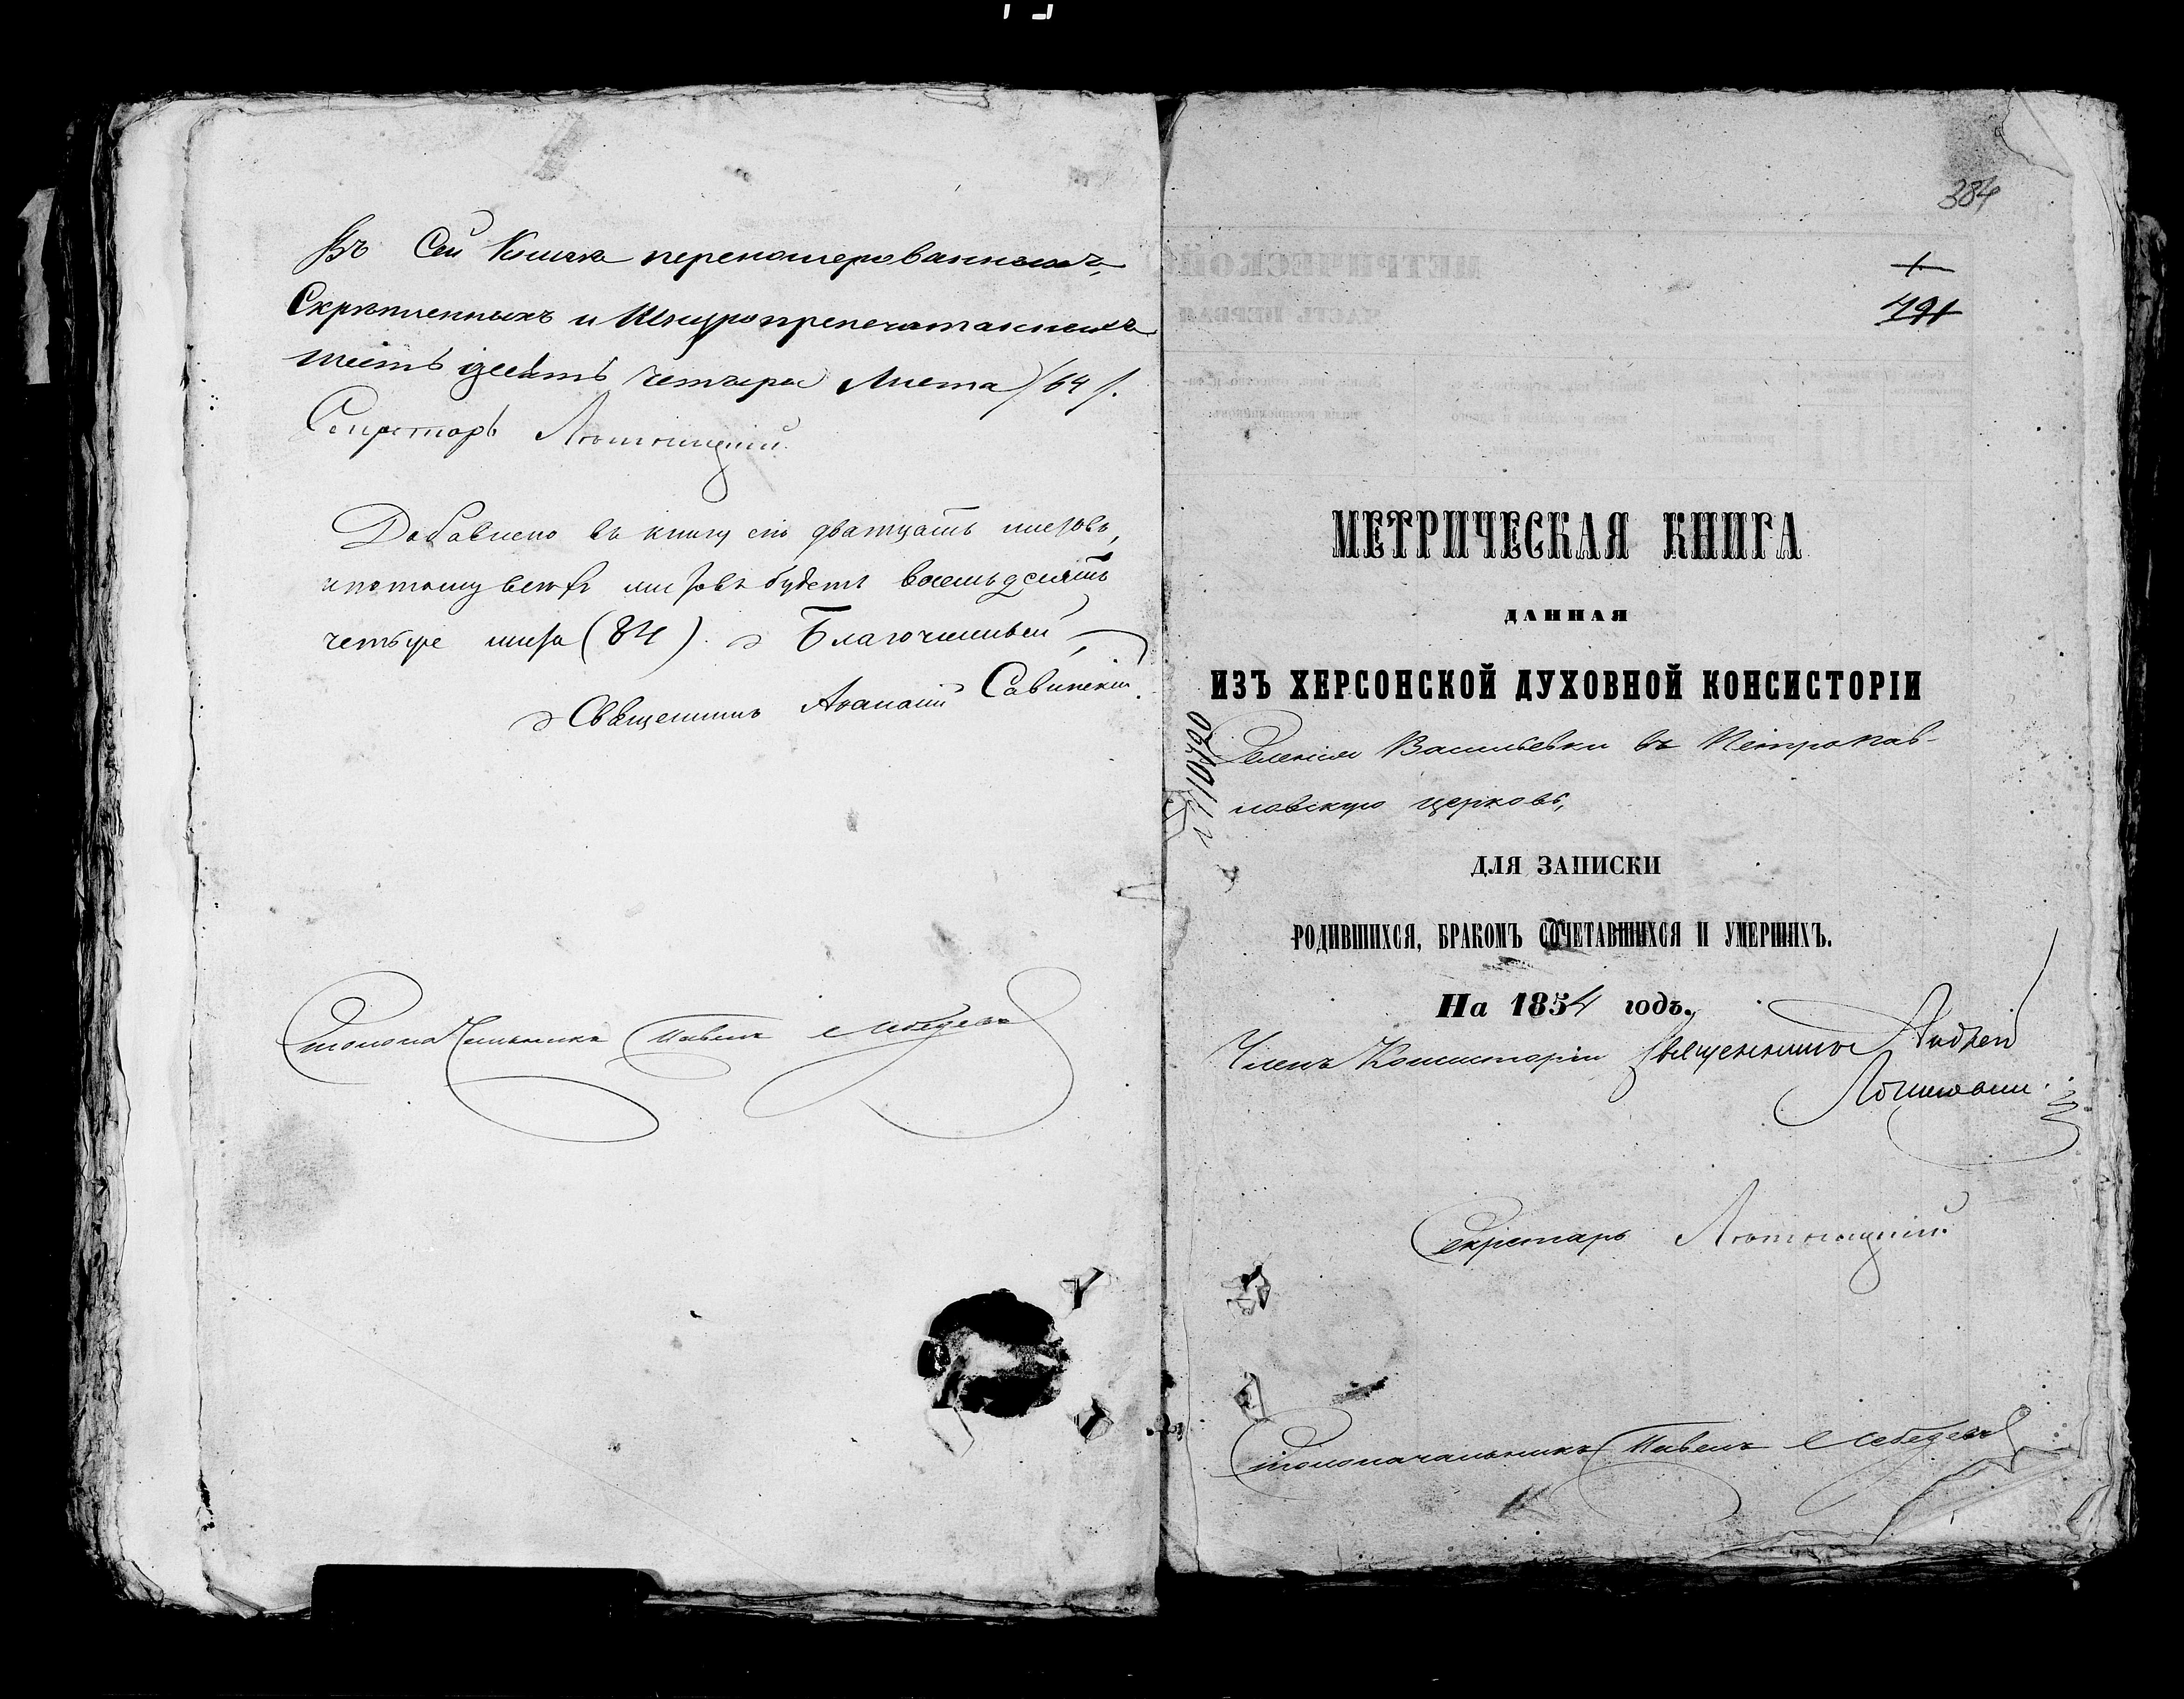 Въ Сей Книга перенумерованныхъ,
Скрѣпленныхъ и Шнуропрепечатанныхъ
шестьдесятъ четыре Листа /64/.
Секретарь
Добавлено въ книгу сію дватцать листовъ,
и потому всѣхъ листовъ будетъ восемьдесятъ
четыре листа (84). Благочинный
Священникъ Савинскій.
Столоначальникъ Павелъ Лебедевъ
384
1
791
МЕТРИЧЕСКАЯ КНИГА
ДАННАЯ
ИЗЪ ХЕРСОНСКОЙ ДУХОВНОЙ КОНСИСТОРІИ
Селенія Васильевки въ Петропав-
ловскую церковь,
№ 10490
ДЛЯ ЗАПИСКИ
РОДИВШИХСЯ, БРАКОМЪ СОЧЕТАВШИХСЯ И УМЕРШИХЪ.
На 1854 годъ.
Членъ Консисторіи Священникъ Андрей
Секретарь
Столоначальникъ Павелъ Лебедевъ